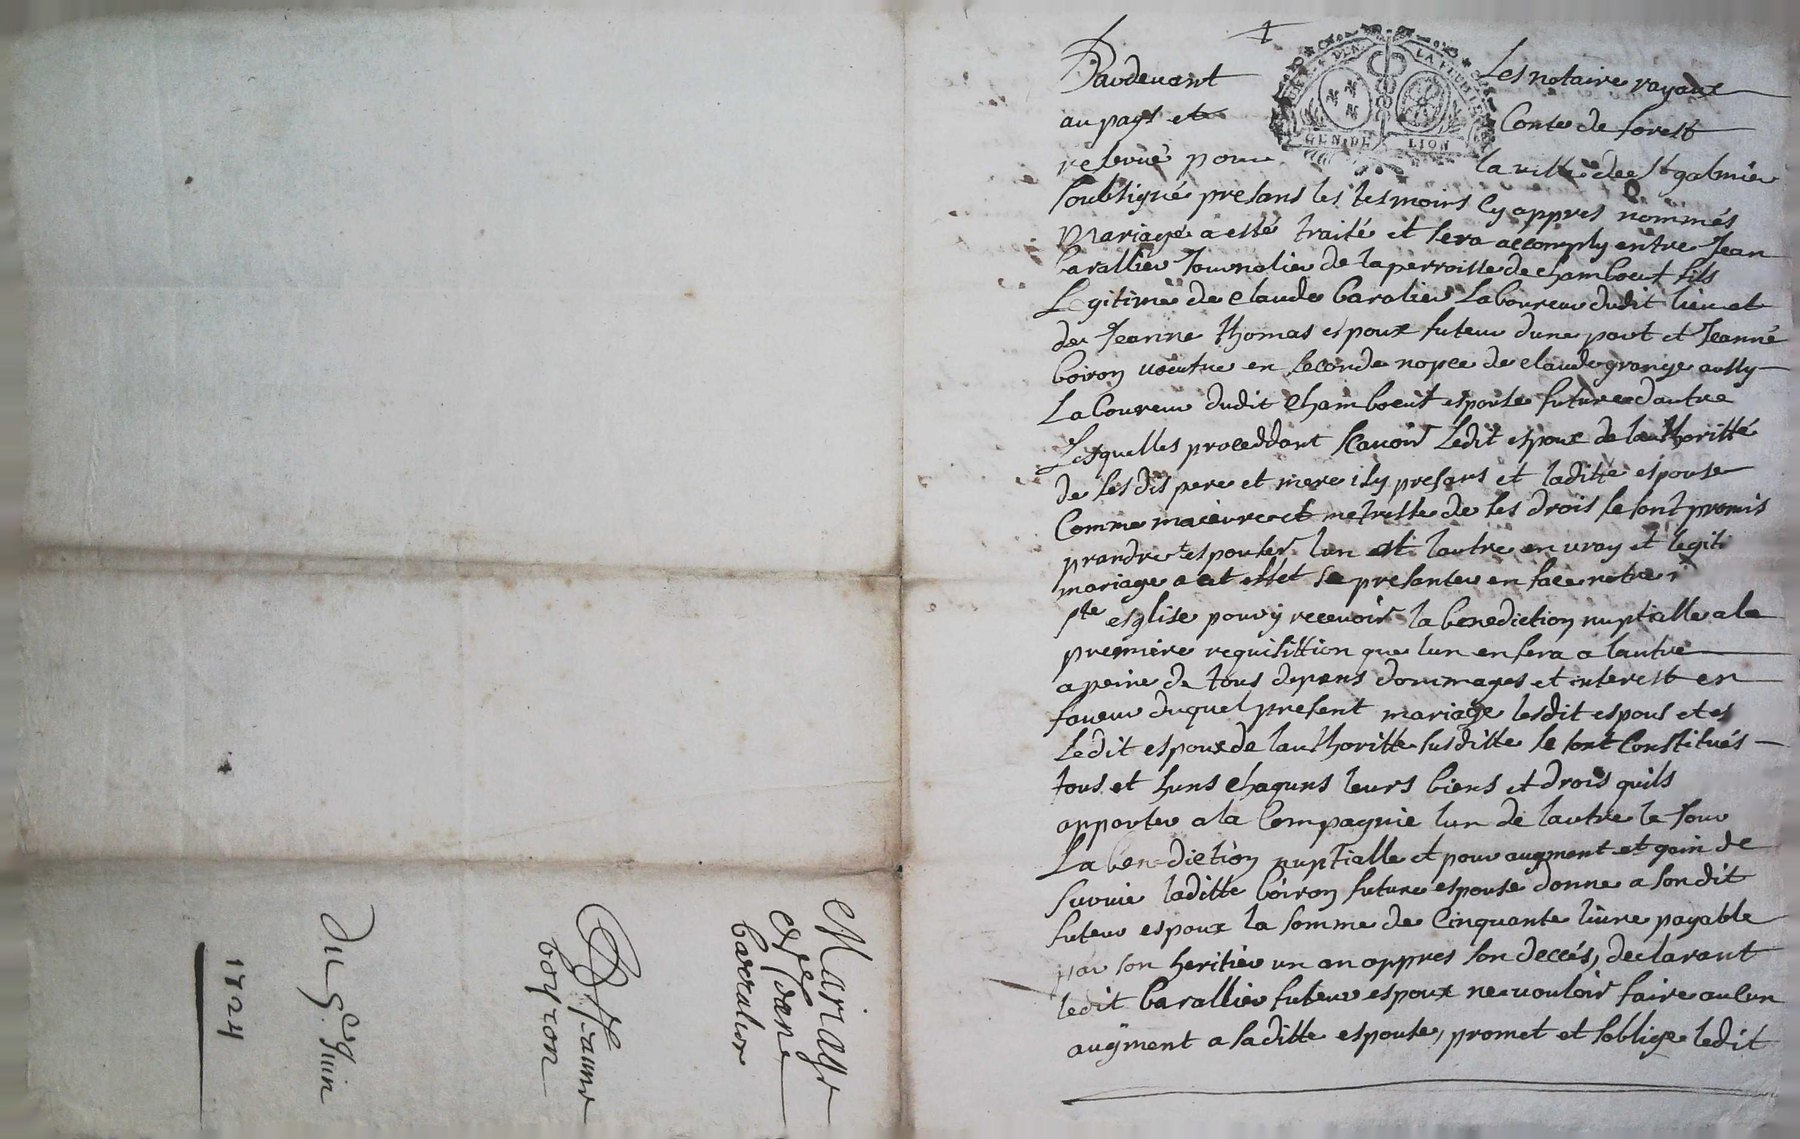 Pardevant Les notaire rayaux
au pays et Conte de forest
reservé pour la ville de St galmier
soubsigné presans les tesmoins cy appres nommés
Mariage a esté traité et sera accomply entre Jean
barallier Journalier de la perroisse de chamboeuf fils
Legitime de claude baralier Laboureur dudit lieu et
de Jeanne thomas espoux futeur dune part et Jeanne
boiron veufve en seconde nopce de claude grange aussy
Laboureur dudit chamboeuf espouse future dautre
Lesquelles proceddant scavoir Ledit espoux de lauthoritté
de ses dis pere et mere icy presans et laditte espouse
comme maieure et metresse de ses drois se sont promis
prandre et espouser lun et lautre en vray et legiti
mariage a cet effet se presanter en face notre
ste esglise pour y recevoir la benediction nuptialle a la
premiere requisittion que lun en fera a lautre
a peine de tous depans dommages et interest en
faveur duquel present mariage lesdit espous et es
Ledit espoux de lauthoritte susditte se sont Constitués
tous et huns chaquns leurs biens et drois quils
apporter a la Compagnie lun de lautre le Jour
La benediction nuptialle et pour augment et gain de
survie laditte boiron future espouse donne a son dit
futeur espoux la somme de Cinquante livre payable
par son heritier un an appres son deccés, declarant
ledit barallier futeur espoux ne vouloir faire aucun
augment a saditte espouse, promet et soblige ledit
Mariage
de Jean
barralier
Et Jeanne
boyron
du 5e Juin
1724